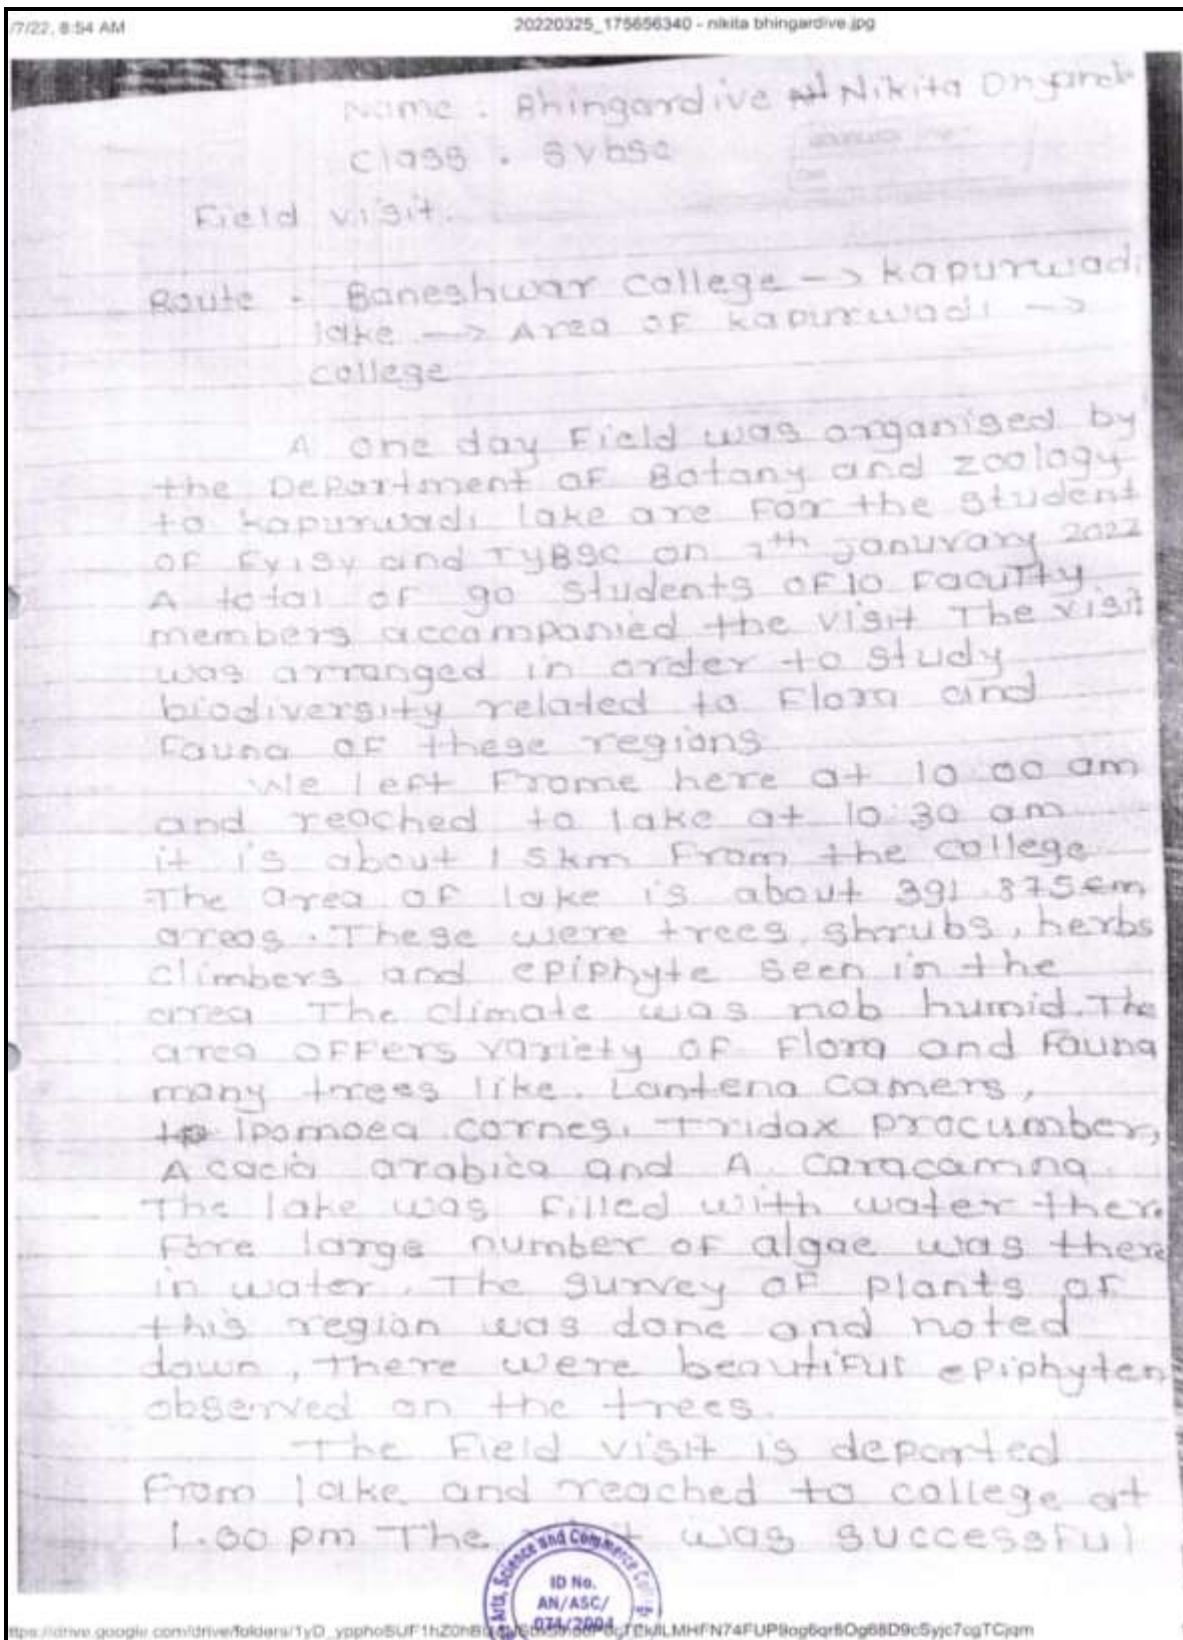 /7/22, 8:54 AM 20220325_175656340 - nikita bhingardive.jpg
Name : Bhingardive Nikita
Class . SYbsc
Field visit.
Route - Baneshwar college -> kapurwadi
lake -> Area of kapurwadi ->
college
A one day Field was organised by
the Department of Botany and zoology
to kapurwadi lake are For the student
of Fy1sy and TYBSC on 7th januvary 2022
A total of 90 students of 10 Faculty
members accompanied the visit The visit
was arranged in order to study
biodiversity related to Flora and
Fauna of these regions
We left Frome here at 10 00 am
and reached to lake at 10:30 am
it is about 15km From the college
The area of lake is about 391 375
areas. These were trees, shrubs, herbs
climbers and epiphyte seen in the
area The climate was nob humid. The
area offers variety of Flora and Fauna
many trees like. Lantena camers,
Ipomoea cornes. Tridax procumber,
Acacia arabica and A. caracamna.
The lake was Filled with water there
Fore large number of algae was there
in water. The survey of plants of
this region was done and noted
down, There were beautiful epiphyten
observed on the trees.
The Field visit is departed
From lake and reached to college at
1.00 pm The was successful
Arts, Science and Commerce
ID No.
AN/ASC/
074/2004